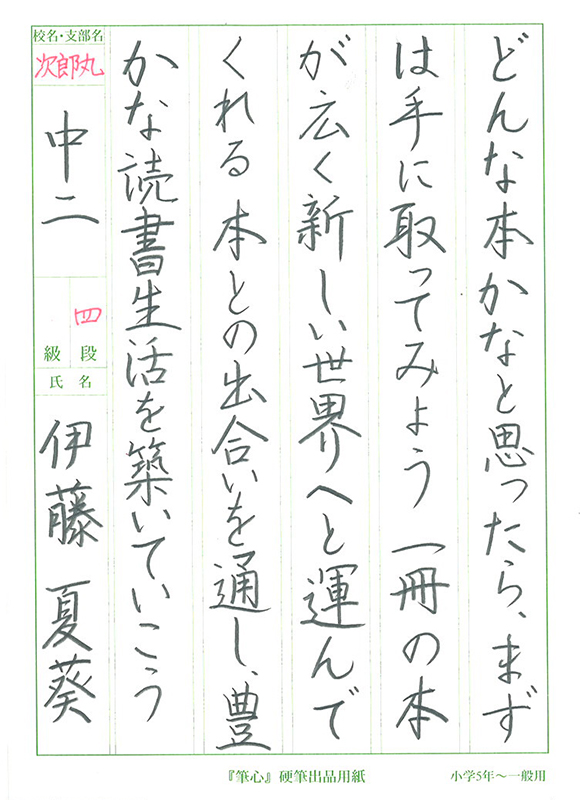 どんな本かなと思ったら、まず
は手に取ってみよう 一冊の本
が広く新しい世界へと運んで
くれる 本との出合いを通し、豊
かな読書生活を築いていこう
校名・支部名
次郎丸
中二
四
段
級
氏名
伊藤 夏葵
『筆心』硬筆出品用紙
小学5年〜一般用